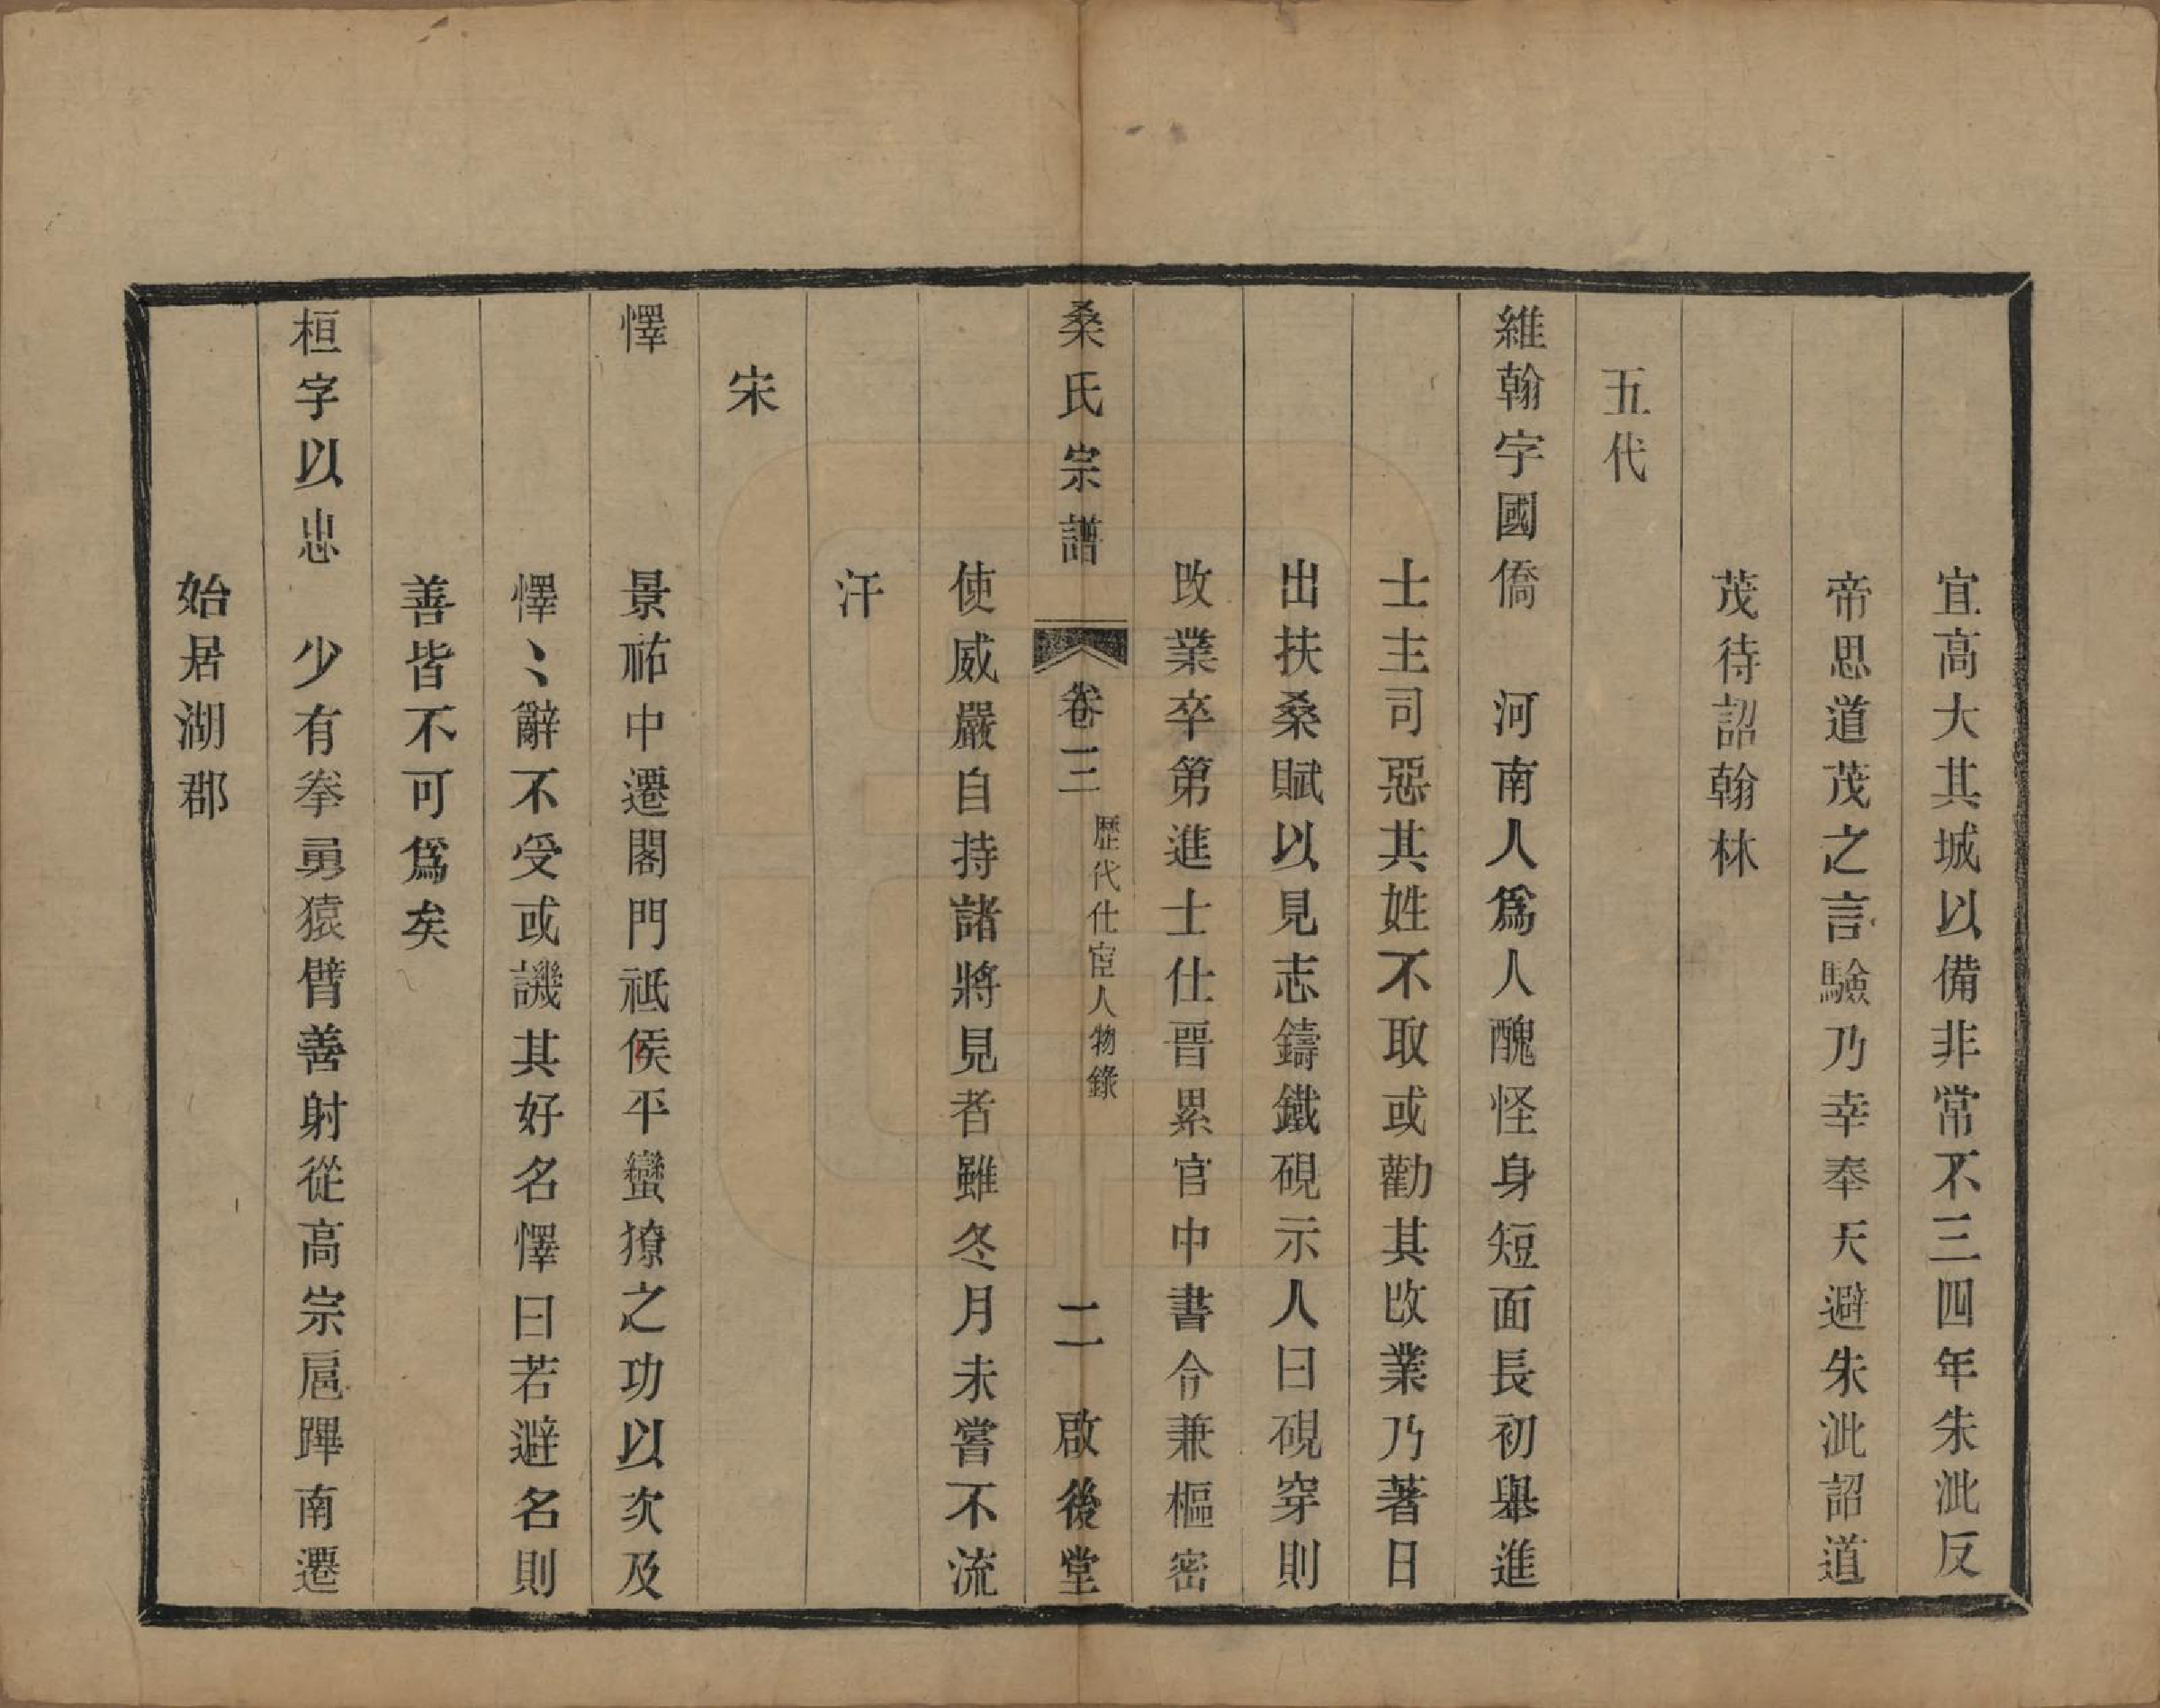 宜高大其城以備非常不三四年朱泚反
帝思道茂之言驗乃幸奉天避朱泚詔道
茂待詔翰林
五代
維翰字國僑　河南人爲人醜怪身短面長初舉進
士主司惡其姓不取或勸其改業乃著日
出扶桑賦以見志鑄鐵硯示人曰硯穿則
改業卒第進士仕晋累官中書令兼樞密
桑氏宗譜　卷二　歷代仕宦人物錄　二　啟後堂
使威嚴自持諸將見者雖冬月未嘗不流
汗
宋
懌　景祐中遷閣門祗侯平蠻獠之功以次及
懌〻辭不受或譏其好名懌曰若避名則
善皆不可爲矣
桓字以忠　少有拳勇猿臂善射從高宗扈蹕南遷
始居湖郡